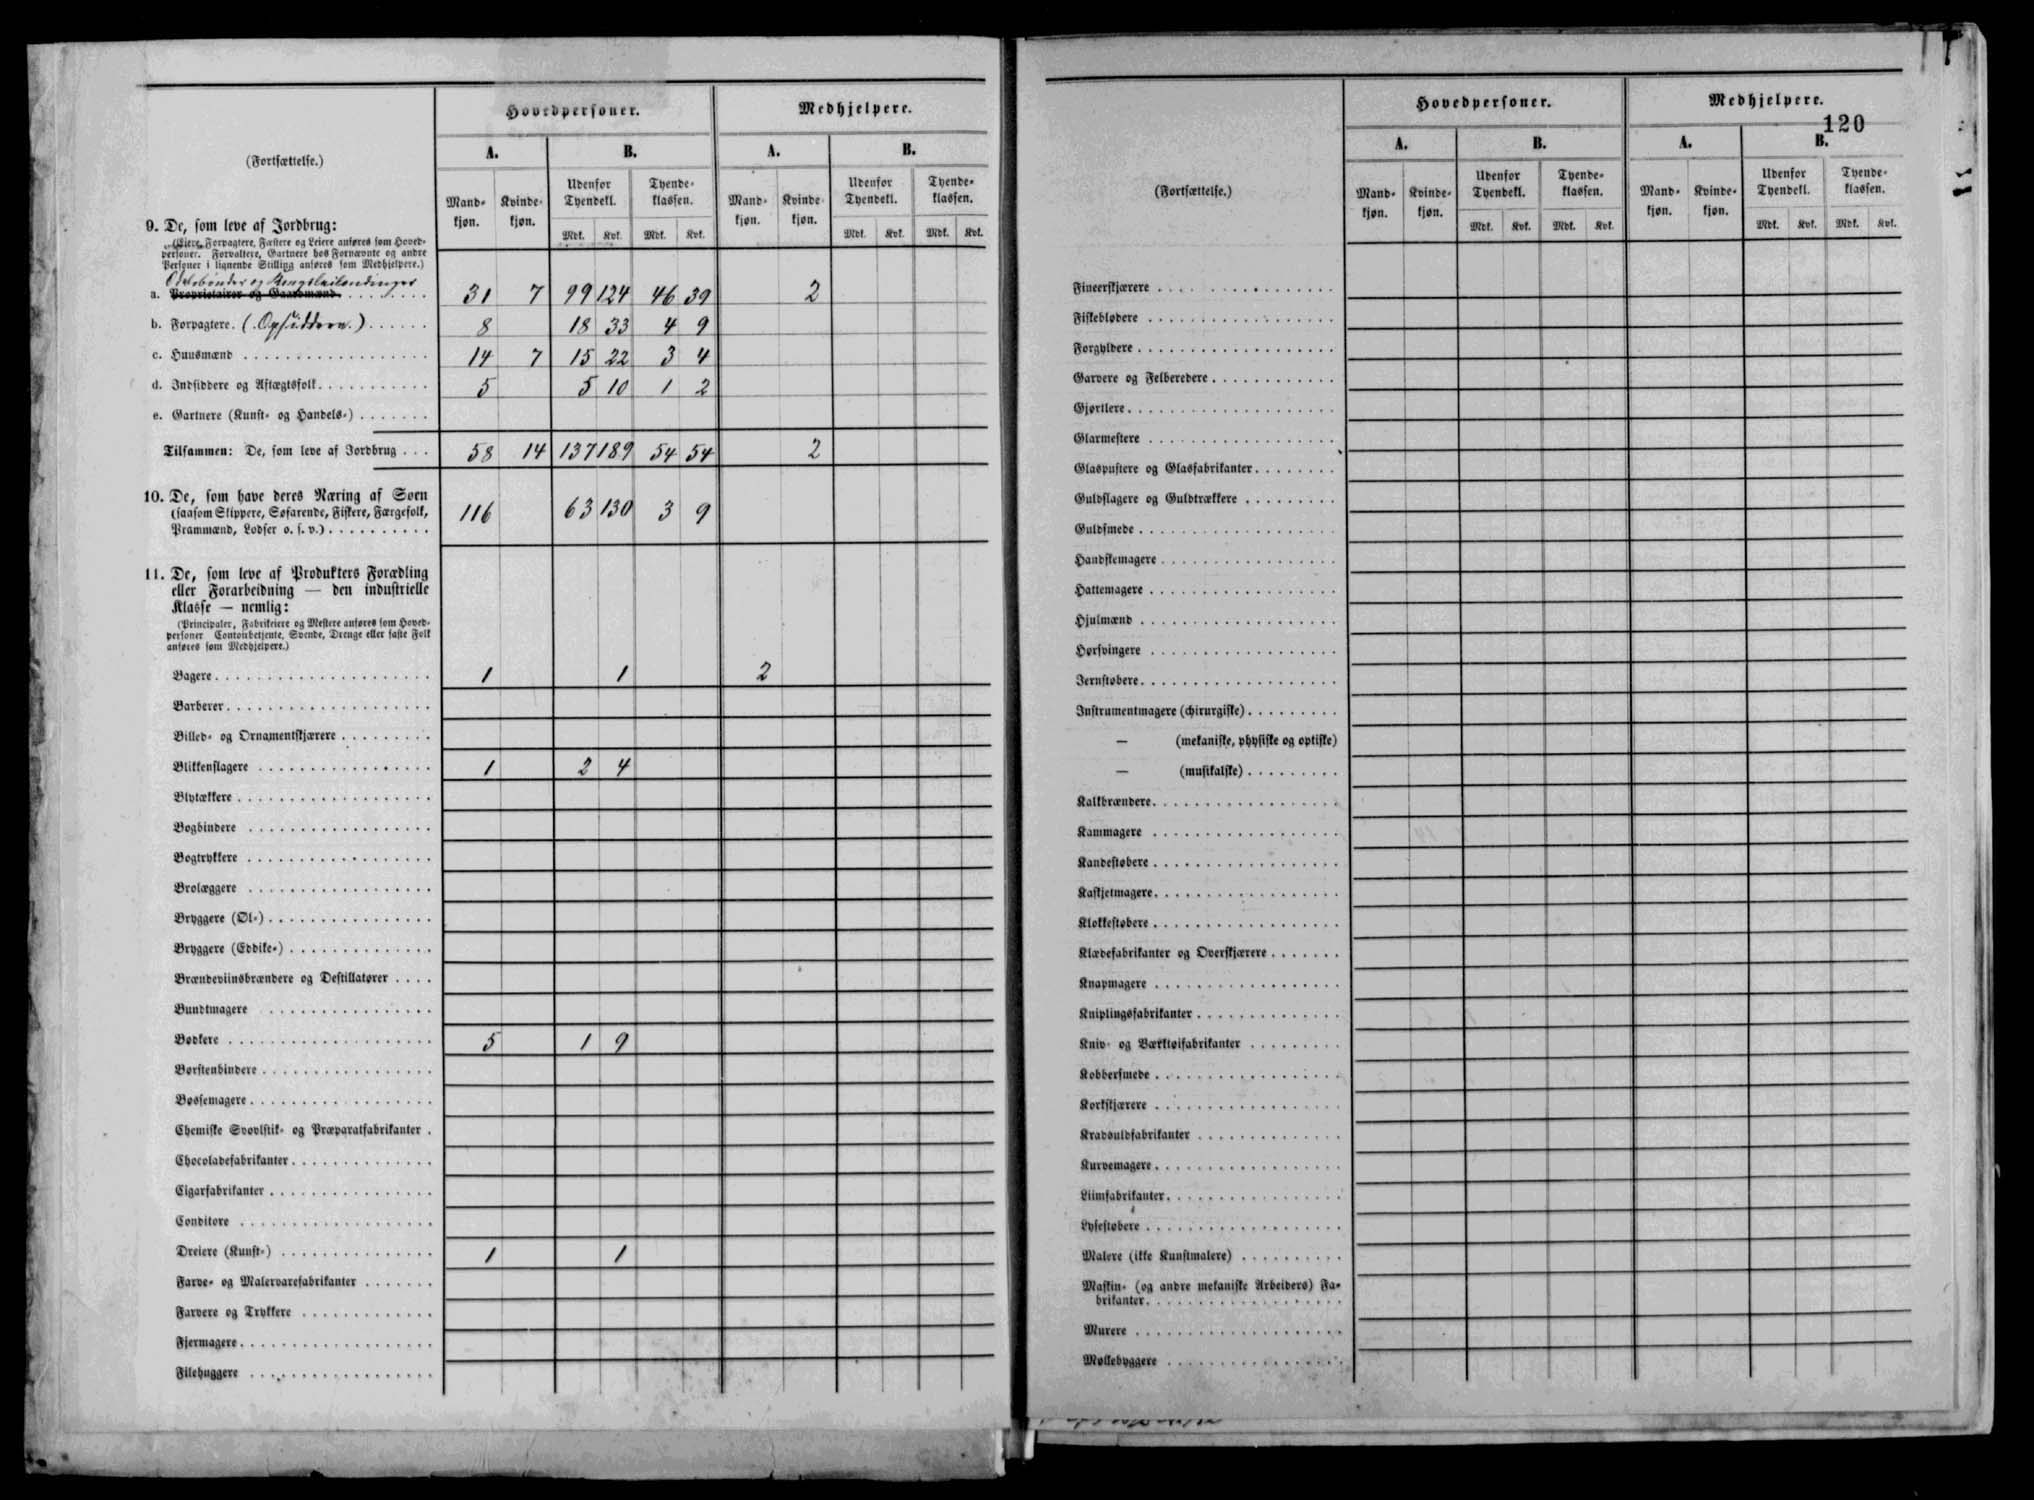 Hovedpersoner. Medhjelpere.
(Fortsættelse.) A. B. A. B.
Mandkjøn. Kvindekjøn. Udenfor Tyendekl. Tyendeklassen. Mandkjøn. Kvindekjøn. Udenfor Tyendekl. Tyendeklassen.
Mdk. Kvk. Mdk. Kvk. Mdk. Kvk. Mdk. Kvk.
9. De, som leve af Jordbrug:
(Eiere, Forpagtere, Fæstere og Leiere anføres som Hoved-
personer. Forvaltere, Gartnere hos Fornævnte og andre
Personer i lignende Stilling anføres som Medhjelpere.)
Odelsbønder og Kongsleilændinger
a. Proprietairer og Gaardmænd 31 7 99 124 46 39 2
b. Forpagtere. (Opsiddere.) 8 18 33 4 9
c. Huusmænd 14 7 15 22 3 4
d. Indsiddere og Aftægtsfolk 5 5 10 1 2
e. Gartnere (Kunst- og Handels-)
Tilsammen: De, som leve af Jordbrug 58 14 137 189 54 54 2
10. De, som have deres Næring af Søen
(saasom Skippere, Søfarende, Fiskere, Færgefolk,
Prammænd, Lodser o. s. v.) 116 63 130 3 9
11. De, som leve af Produkters Forædling
eller Forarbeidning — den industrielle
Klasse — nemlig:
(Principaler, Fabrikeiere og Mestere anføres som Hoved-
personer Contoirbetjente, Svende, Drenge eller faste Folk
anføres som Medhjelpere.)
Bagere 1 1 2
Barberer
Billed- og Ornamentskjærere
Blikkenslagere 1 2 4
Blytækkere
Bogbindere
Bogtrykkere
Brolæggere
Bryggere (Øl-)
Bryggere (Eddike-)
Brændeviinsbrændere og Destillatører
Bundtmagere
Bødkere 5 1 9
Børstenbindere
Bøssemagere
Chemiske Svovlstik- og Præparatfabrikanter
Chocoladefabrikanter
Cigarfabrikanter
Conditore
Dreiere (Kunst-) 1 1
Farve- og Malervarefabrikanter
Farvere og Trykkere
Fjermagere
Filehuggere
Hovedpersoner. Medhjelpere.
120
(Fortsættelse.) A. B. A. B.
Mandkjøn. Kvindekjøn. Udenfor Tyendekl. Tyendeklassen. Mandkjøn. Kvindekjøn. Udenfor Tyendekl. Tyendeklassen.
Mdk. Kvk. Mdk. Kvk. Mdk. Kvk. Mdk. Kvk.
Fineerskjærere
Fiskebløbere
Forgyldere
Garvere og Felberedere
Gjørtlere
Glarmestere
Glaspustere og Glasfabrikanter
Guldslagere og Guldtrækkere
Guldsmede
Handskemagere
Hattemagere
Hjulmænd
Hørsvingere
Jernstøbere
Instrumentmagere (chirurgiske)
— (mekaniske, physiske og optiske)
— (musikalske)
Kalkbrændere
Kammagere
Kandestøbere
Kaskjetmagere
Klokkestøbere
Klædefabrikanter og Overskjærere
Knapmagere
Kniplingsfabrikanter
Kniv- og Værktøifabrikanter
Kobbersmede
Korkskjærere
Kradsuldfabrikanter
Kurvemagere
Liimfabrikanter
Lysestøbere
Malere (ikke Kunstmalere)
Maskin- (og andre mekaniske Arbeiders) Fa-
brikanter
Murere
Møllebyggere